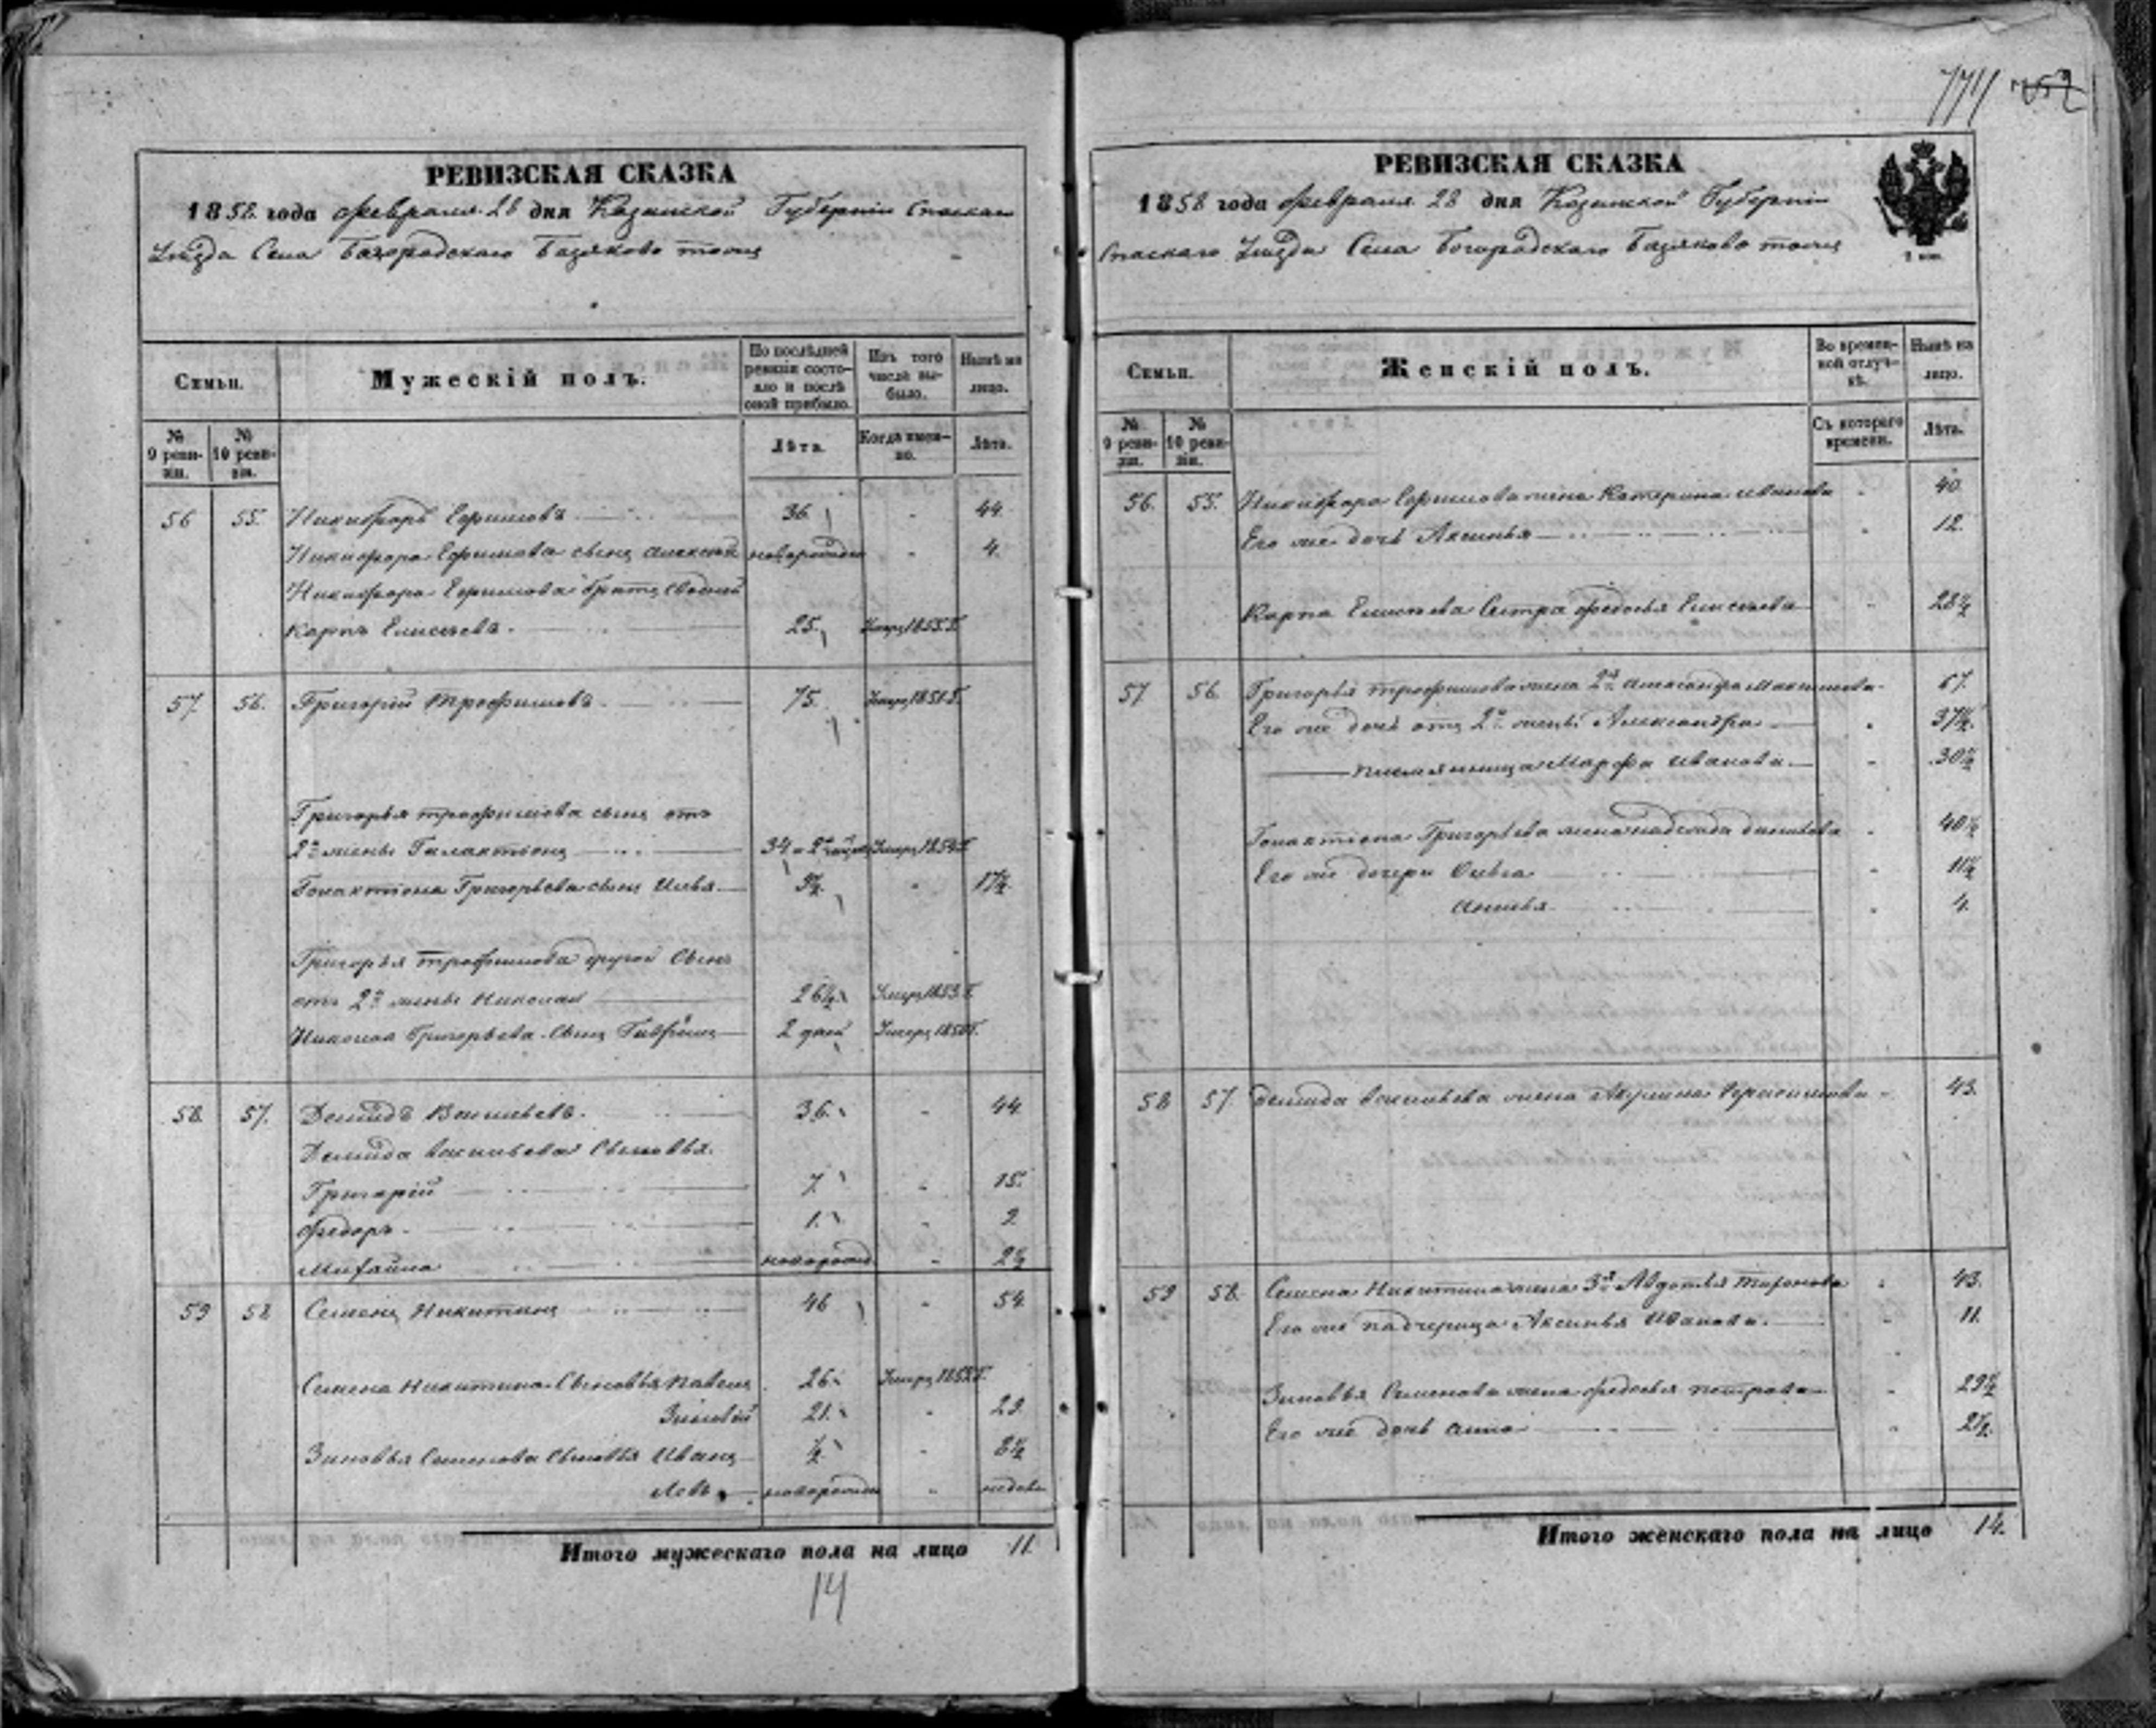 774 752
РЕВИЗСКАЯ СКАЗКА
1858 года февраля 28 дня Казанской Губернии Спаскаго
Уѣзда Села Богородскаго Базяково тожъ
Семьи.
Мужескій полъ.
По послѣдней ревизіи состояло и послѣ оной прибыло.
Изъ того числа выбыло.
Нынѣ на лицо.
№ 9 ревизіи.
№ 10 ревизіи.
Лѣта.
Когда именно.
Лѣта.
56 55. Никифоръ Ефимовъ 36 44.
Никифора Ефимова сынъ Алексей новорожден 4.
Никифора Ефимова братъ сводный
Карпъ Елисеевъ. 25. Умеръ 1855 г.
57. 56. Григорій Трофимовъ 75. Умеръ 1851 г.
Григорья Трофимова сынъ отъ
2й жены Галактіонъ 34 Умеръ 1854 г.
Голактіона Григорьева сынъ Илья 9½ 17½.
Григорья Трофимова другой сынъ
отъ 2й жены Николай 26½ Умеръ 1853 г.
Николая Григорьева сынъ Гаврила 2 дней Умеръ 1850 г.
58. 57. Демидъ Васильевъ. 36. 44.
Демида Васильева сыновья.
Григорій 7 15.
Федоръ. 1. 9.
Михайла новорожд 2½
59 58 Семенъ Никитинъ 46 54.
Семена Никитина сыновья Павелъ 26. Умеръ 1855 г.
Зиновій 21. 29.
Зиновья Семенова сыновья Иванъ ½ 8½
Левъ новорожден недели
Итого мужескаго пола на лицо 11.
14
РЕВИЗСКАЯ СКАЗКА
1858 года февраля 28 дня Казанской Губерніи
Спаскаго Уѣзда Села Богородскаго Базяково тожъ
2 коп.
Семьи.
Женскій полъ.
Во временной отлучкѣ.
Нынѣ на лицо.
№ 9 ревизіи.
№ 10 ревизіи.
Съ котораго времени.
Лѣта.
56. 55. Никифора Ефимова жена Катерина Иванова 40.
Его же дочь Аксинья 12.
Карпа Елисеева сестра Федосья Елисеева 28½
57 56 Григорья Трофимова жена 2я Александра Максимова 67.
Его же дочь отъ 2й жены Александра 37½.
племянница Марфа Иванова 30½
Голактіона Григорьева жена Надежда Данилова 40½
Его же дочери Ольга 11½
Анисья 4.
58 57 Демида Васильева жена Акулина Герасимова 43.
59 58. Семена Никитина жена 3я Авдотья Миронова 43.
Его же падчерица Аксинья Иванова. 11.
Зиновья Семенова жена Федосья Петрова 29½
Его же дочь Анна 2½.
Итого женскаго пола на лицо 14.